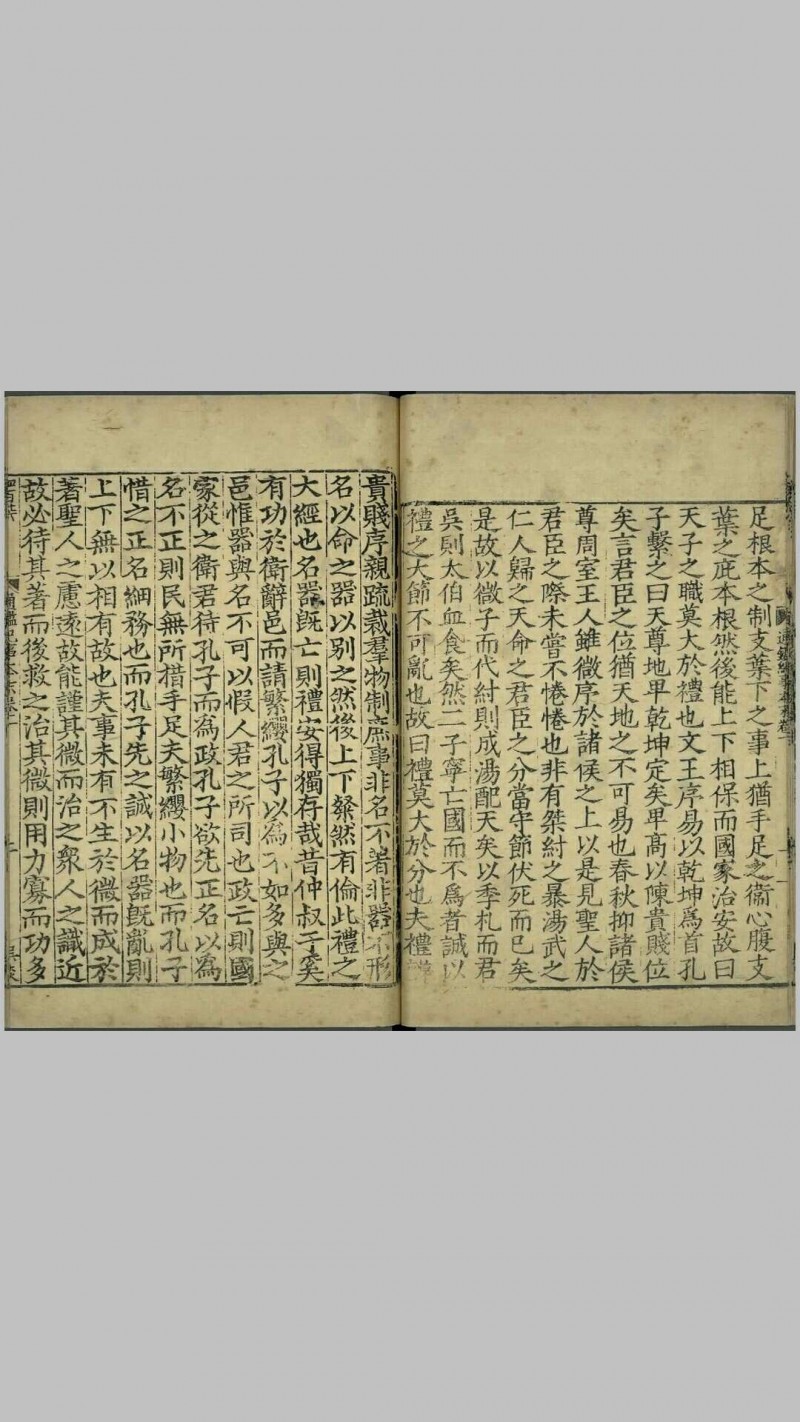 足根本之制支葉下之事上猶手足之衞心腹支
葉之庇本根然後能上下相保而國家治安故曰
天子之職莫大於禮也文王序易以乾坤為首孔
子繫之曰天尊地卑乾坤定矣卑髙以陳貴賤位
矣言君臣之位猶天地之不可易也春秋抑諸侯
尊周室王人雖微序於諸侯之上以是見聖人於
君臣之際未嘗不惓惓也非有桀紂之暴湯武之
仁人歸之天命之君臣之分當守節伏死而已矣
是故以微子而代紂則成湯配天矣以季札而君
吳則太伯血食矣然二子寧亡國而不爲者誠以
禮之大節不可亂也故曰禮莫大於分也夫禮辨
貴賤序親疏裁羣物制庶事非名不著非器不形
名以命之器以别之然後上下粲然有倫此禮之
大經也名器旣亡則禮安得獨存哉昔仲叔于奚
有功於衞辭邑而請繁纓孔子以為不如多與之
邑惟器與名不可以假人君之所司也政亡則國
家從之衞君待孔子而為政孔子欲先正名以為
名不正則民無所措手足夫繁纓小物也而孔子
惜之正名細務也而孔子先之誠以名器旣亂則
上下無以相有故也夫事未有不生於微而成於
著聖人之慮逺故能謹其微而治之衆人之識近
故必待其著而後救之治其微則用力寡而功多